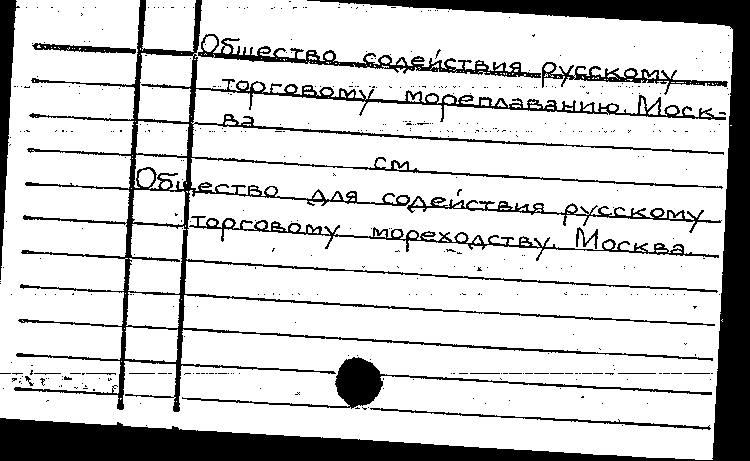 Общество содействия русскому
торговому мореплаванию. Моск-
ва
см.
Общество для содействия русскому
торговому мореходству. Москва.